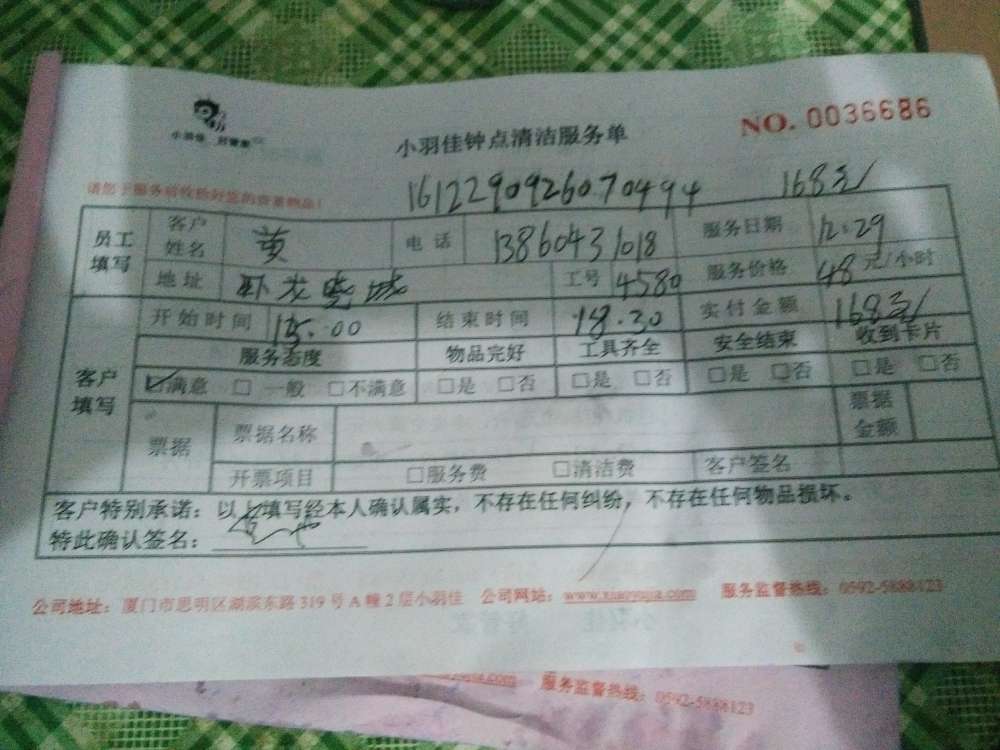 小羽佳 好管家
小羽佳钟点清洁服务单
NO. 0036686
请您于服务前收拾好您的贵重物品!
1612290926070494 168元/
员工填写 客户姓名 黄 电话 13860431018 服务日期 12.29
地址 卧龙晓城 工号 4580 服务价格 48 元/小时
客户填写 开始时间 15.00 结束时间 18.30 实付金额 168元/
服务态度 物品完好 工具齐全 安全结束 收到卡片
☑满意 □一般 □不满意 □是 □否 □是 □否 □是 □否 □是 □否
票据 票据名称 票据金额
开票项目 □服务费 □清洁费 客户签名
客户特别承诺:以上填写经本人确认属实,不存在任何纠纷,不存在任何物品损坏。
特此确认签名:
公司地址:厦门市思明区湖滨东路319号A幢2层小羽佳 公司网站:www.xiaoyujia.com 服务监督热线:0592-5888123
服务监督热线:0592-5888123